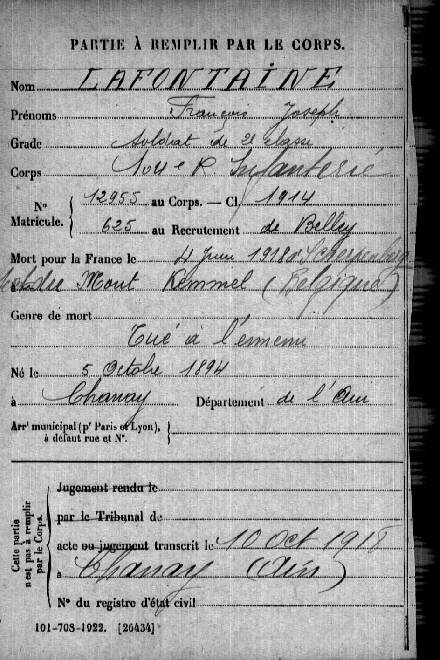 PARTIE À REMPLIR PAR LE CORPS.
Nom LAFONTAINE
Prénoms François Joseph
Grade Soldat de 2e classe
Corps R. Infanterie
Nº Matricule. { 12955 au Corps. — Cl. 1914
625 au Recrutement de Belley
Mort pour la France le 4 Juin 1918 Scherpenberg
Mont Kemmel (Belgique)
Genre de mort
Tué à l'ennemi
Né le 5 Octobre 1894
à Chanay Département de l'Ain
Arrt municipal (pr Paris et Lyon), à défaut rue et Nº. {
Cette partie n'est pas à remplir par le Corps.
Jugement rendu le
par le Tribunal de
acte ou jugement transcrit le 10 Oct 1918
à Chanay (Ain)
Nº du registre d'état civil
101-708-1922. [26434]